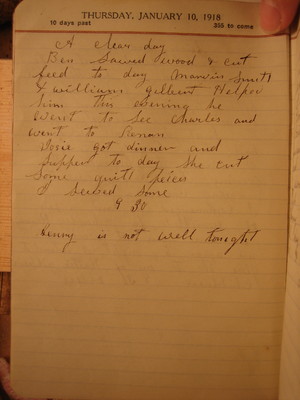 THURSDAY, JANUARY 10, 1918
10 days past 355 to come
A clear day
Ben Sawed wood & cut
feed to day Marvin Smith
& william gilbert Helped
him this evening he
went to See Charles and
went to
Josie got dinner and
Supper to day She cut
Some quilt peices
I Sewed Some
9 30
is not well tonight